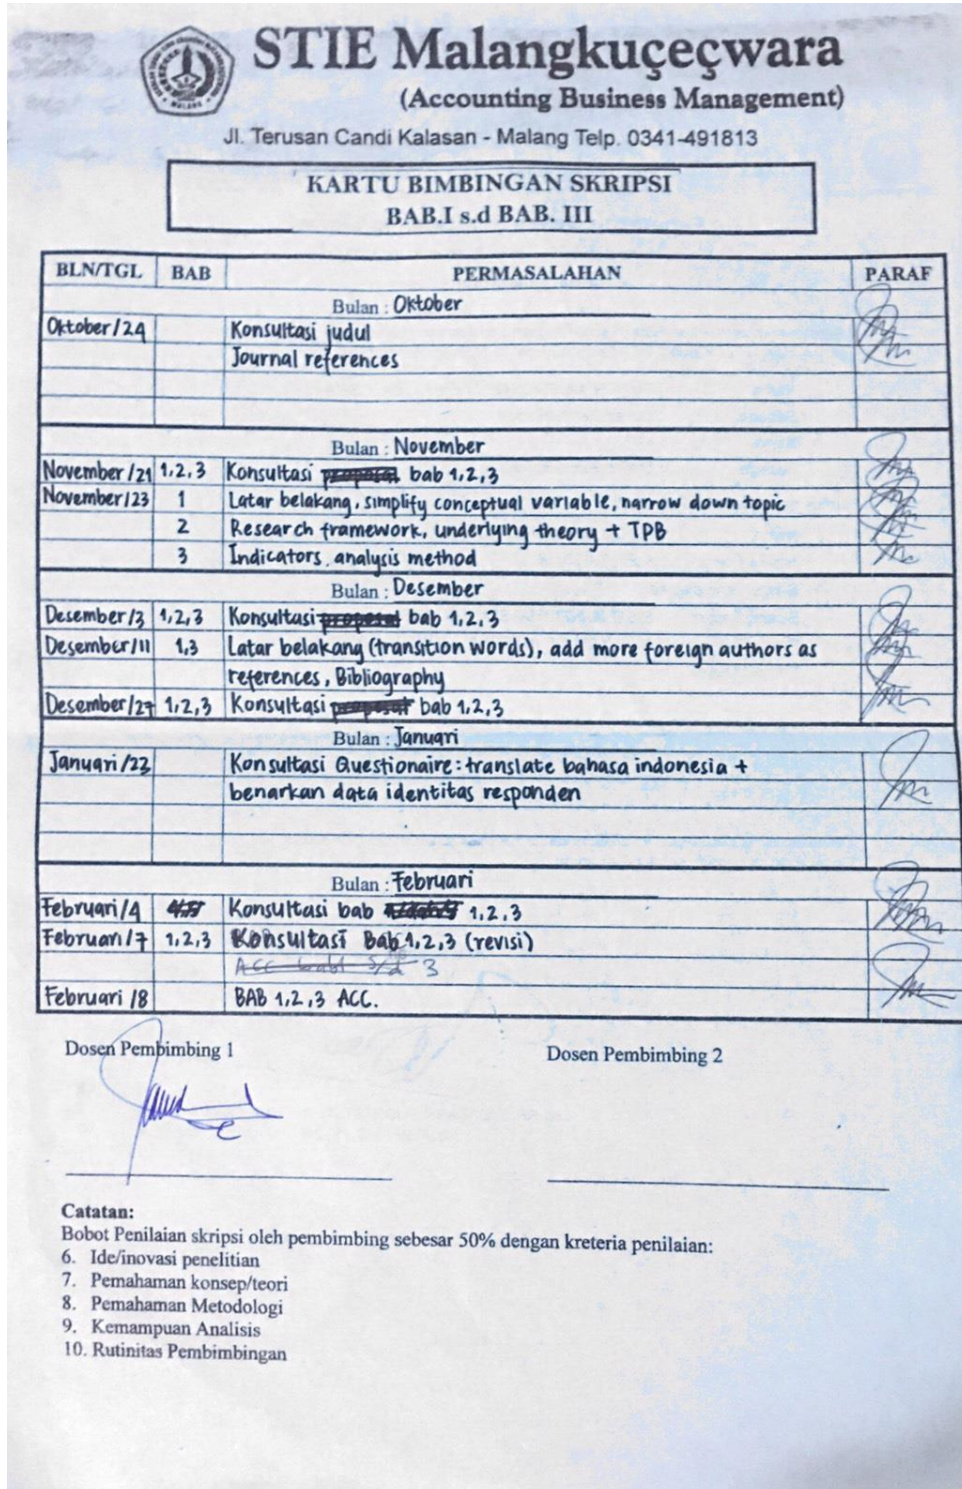 STIE Malangkuçeçwara
(Accounting Business Management)
Jl. Terusan Candi Kalasan - Malang Telp. 0341-491813
KARTU BIMBINGAN SKRIPSI
BAB.I s.d BAB. III
BLN/TGL BAB PERMASALAHAN PARAF
Bulan : Oktober
Oktober/24 Konsultasi judul
Journal references
Bulan : November
November/21 1,2,3 Konsultasi proposal bab 1,2,3
November/23 1 Latar belakang, simplify conceptual variable, narrow down topic
2 Research framework, underlying theory + TPB
3 Indicators, analysis method
Bulan : Desember
Desember/3 1,2,3 Konsultasi proposal bab 1,2,3
Desember/11 1,3 Latar belakang (transition words), add more foreign authors as
references, Bibliography
Desember/27 1,2,3 Konsultasi proposal bab 1,2,3
Bulan : Januari
Januari/23 Konsultasi Questionaire : translate bahasa indonesia +
benarkan data identitas responden
Bulan : Februari
Februari/4 Konsultasi bab 1,2,3
Februari/7 1,2,3 Konsultasi Bab 1,2,3 (revisi)
ACC bab1 s/d 3
Februari/8 BAB 1,2,3 ACC.
Dosen Pembimbing 1 Dosen Pembimbing 2
Catatan:
Bobot Penilaian skripsi oleh pembimbing sebesar 50% dengan kreteria penilaian:
6. Ide/inovasi penelitian
7. Pemahaman konsep/teori
8. Pemahaman Metodologi
9. Kemampuan Analisis
10. Rutinitas Pembimbingan